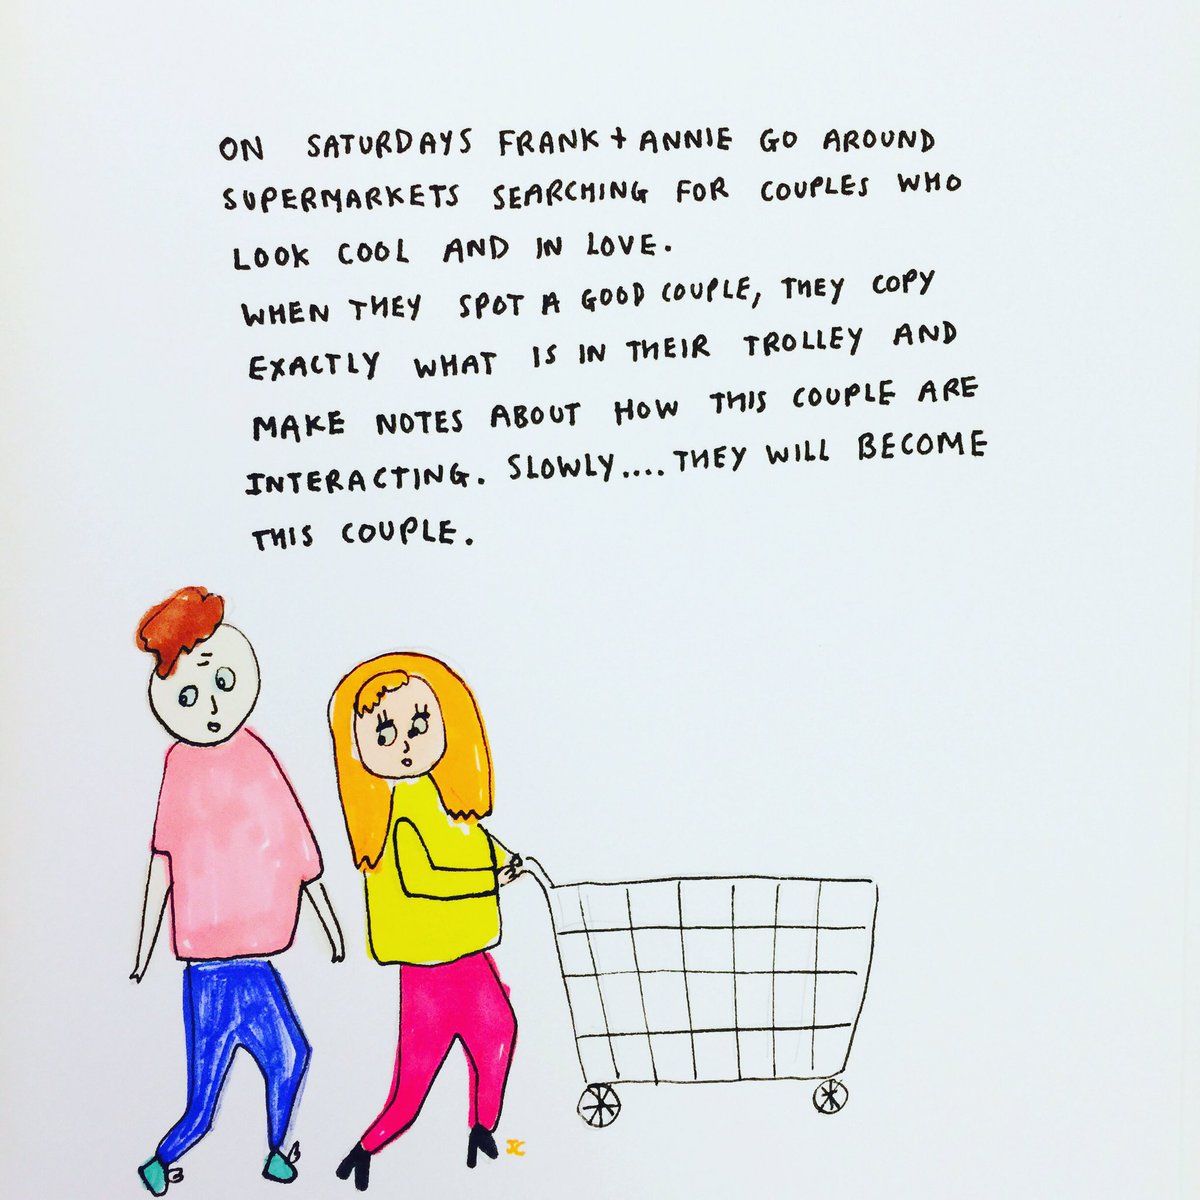 ON SATURDAYS FRANK + ANNIE GO AROUND
SUPERMARKETS SEARCHING FOR COUPLES WHO
LOOK COOL AND IN LOVE.
WHEN THEY SPOT A GOOD COUPLE, THEY COPY
EXACTLY WHAT IS IN THEIR TROLLEY AND
MAKE NOTES ABOUT HOW THIS COUPLE ARE
INTERACTING. SLOWLY.... THEY WILL BECOME
THIS COUPLE.
JC